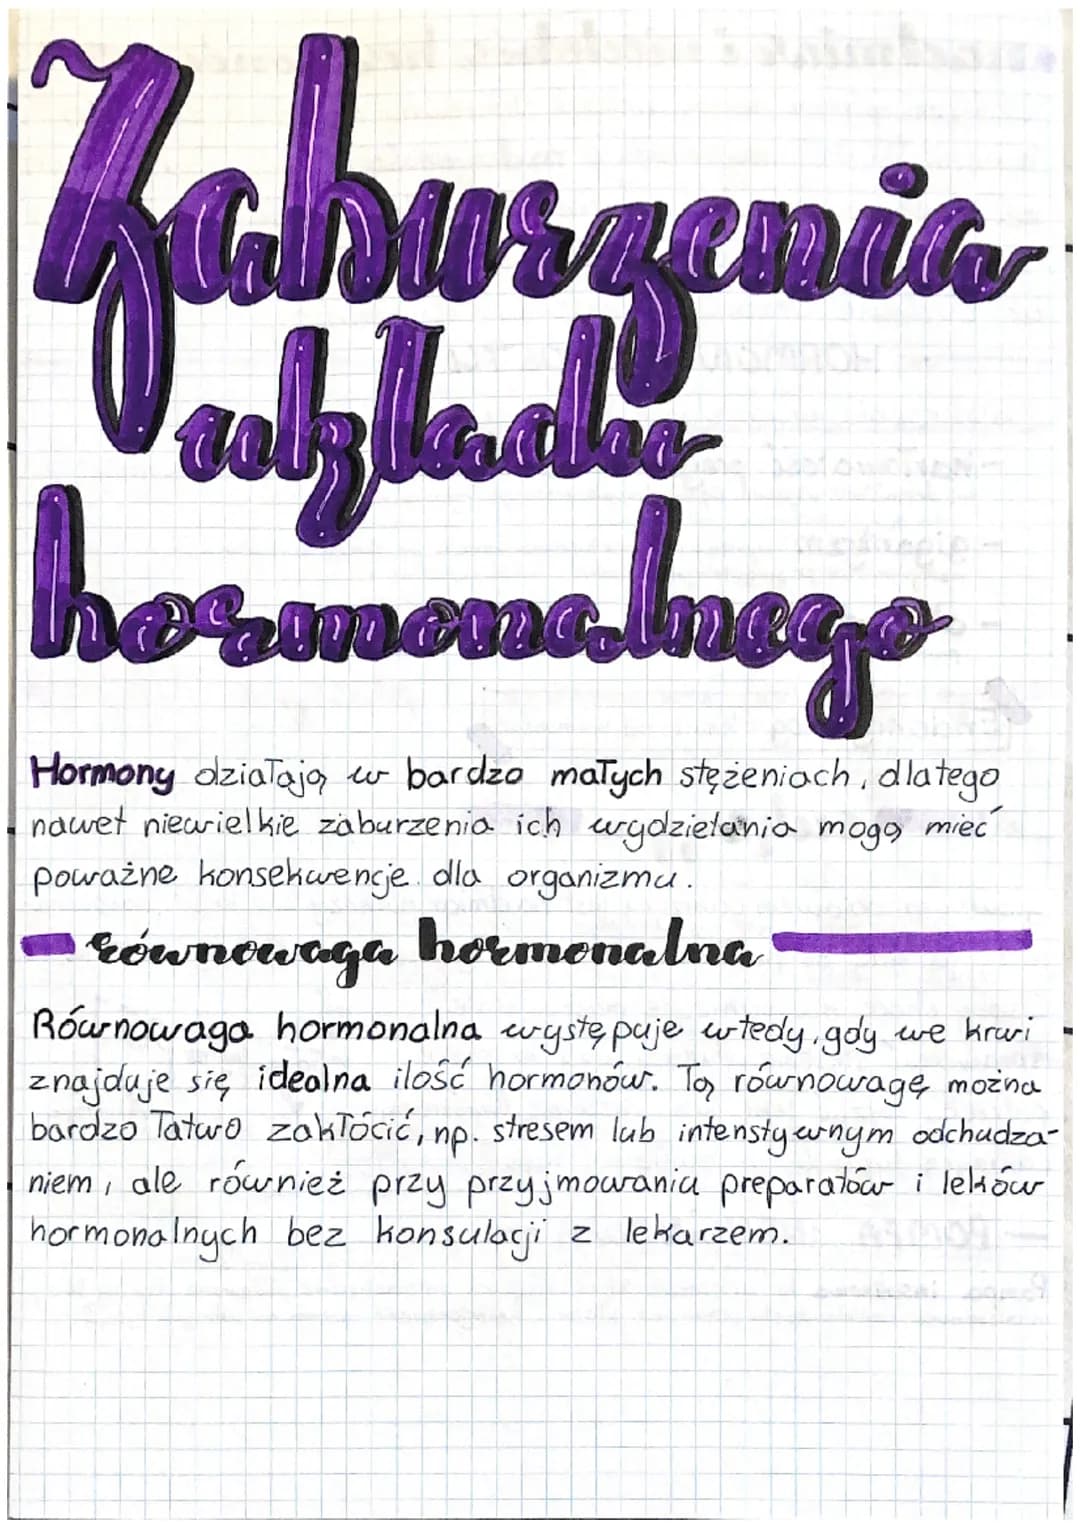 Zaburzenia
układu
hormonalnego
Hormony działają w bardzo małych stężeniach, dlatego
nawet niewielkie zaburzenia ich wydzielania mogą mieć
poważne konsekwencje dla organizmu.
równowaga hormonalna
Równowaga hormonalna występuje wtedy, gdy we krwi
znajduje się idealna ilość hormonów. Tą równowagę można
bardzo łatwo zakłócić, np. stresem lub intenstywnym odchudza-
niem, ale również przy przyjmowaniu preparatów i leków
hormonalnych bez konsulacji z lekarzem.